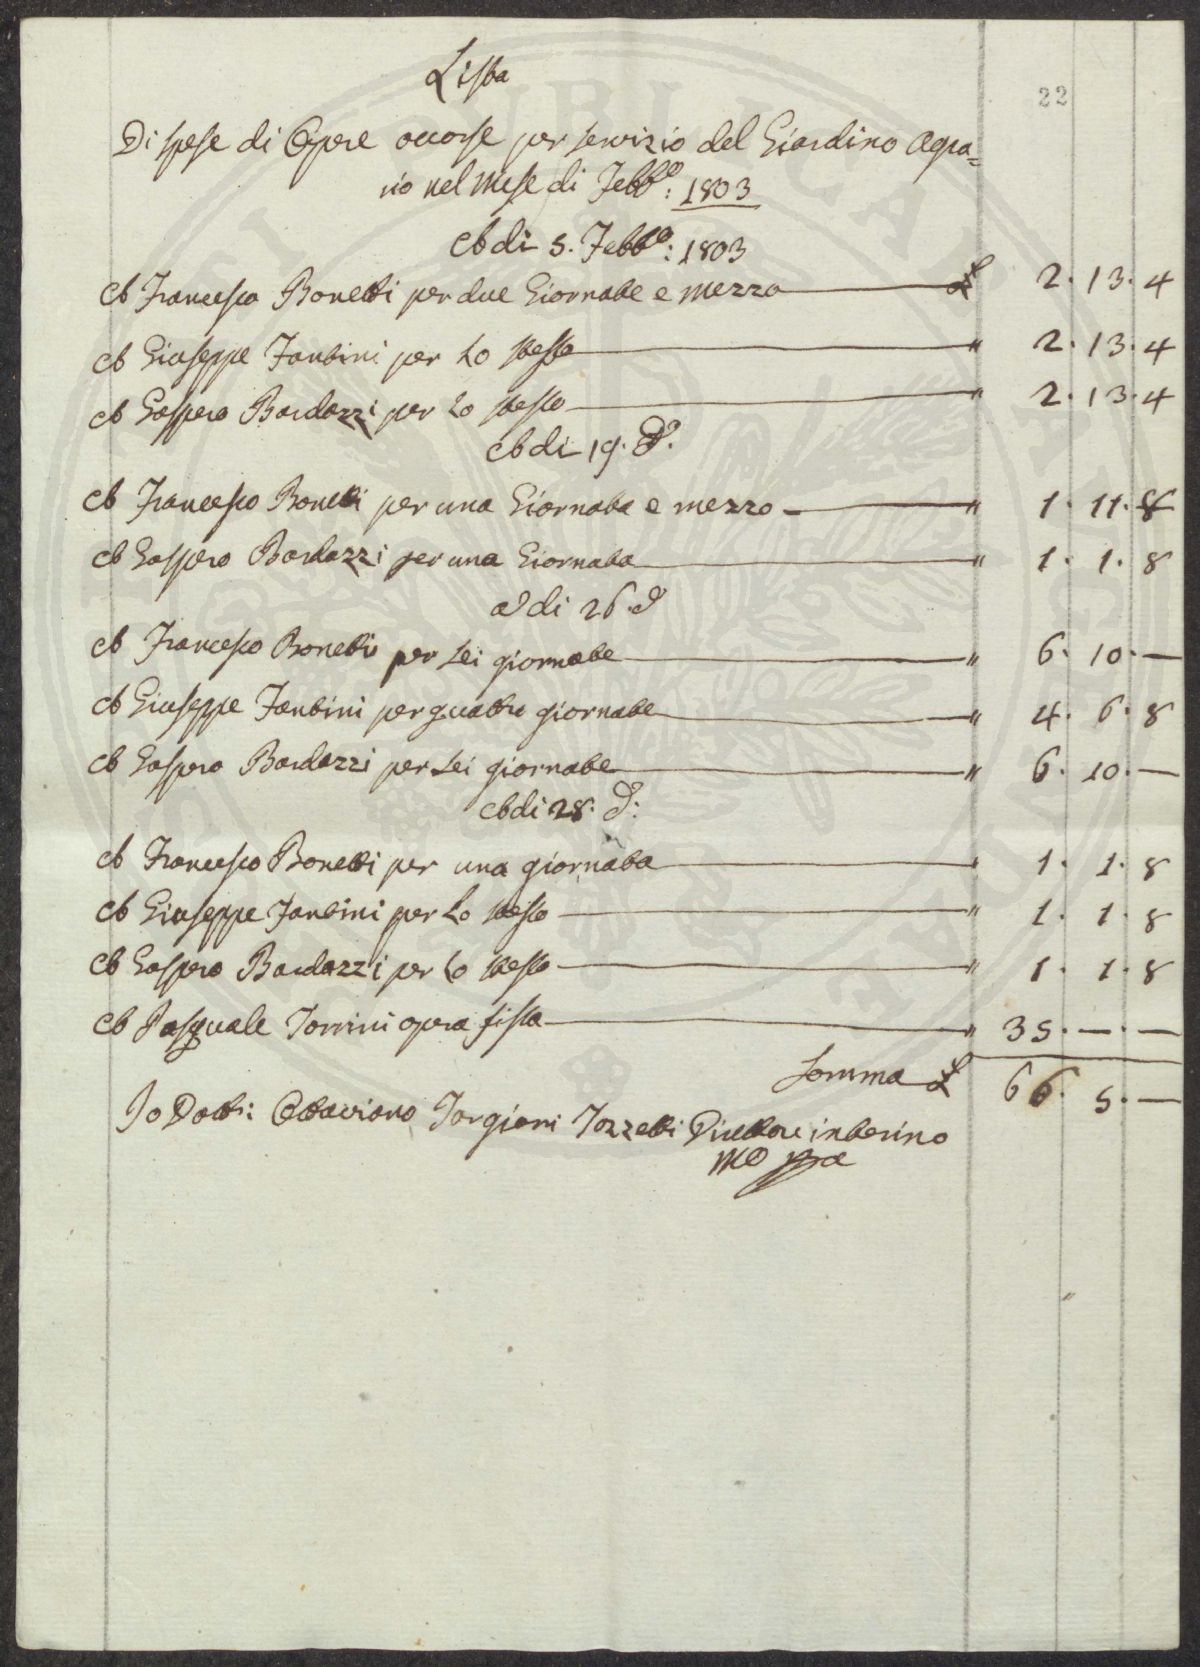 22
Lista
Di spese di Opere occorse per servizio del Giardino Agra=
rio nel Mese di Febb.o: 1803
A di 5. Febb.o: 1803
A Francesco Bonetti per due Giornate e mezzo £ 2. 13. 4
A Giuseppe Fantini per Lo stesso " 2. 13. 4
A Gaspero Bardazzi per Lo stesso " 2. 13. 4
A di 19. d.o
A Francesco Bonetti per una Giornata e mezzo " 1. 11. 8
A Gaspero Bardazzi per una Giornata " 1. 1. 8
A di 26. d.o
A Francesco Bonetti per sei giornate " 6. 10. —
A Giuseppe Fantini per quattro giornate " 4. 6. 8
A Gaspero Bardazzi per sei giornate " 6. 10. —
A di 28. d.o:
A Francesco Bonetti per una giornata " 1. 1. 8
A Giuseppe Fantini per Lo stesso " 1. 1. 8
A Gaspero Bardazzi per Lo stesso " 1. 1. 8
A Pasquale Torrini opera fissa " 35. — . —
Somma £ 66. 5. —
Io Dott: Ottaviano Targioni Tozzetti Direttore interino